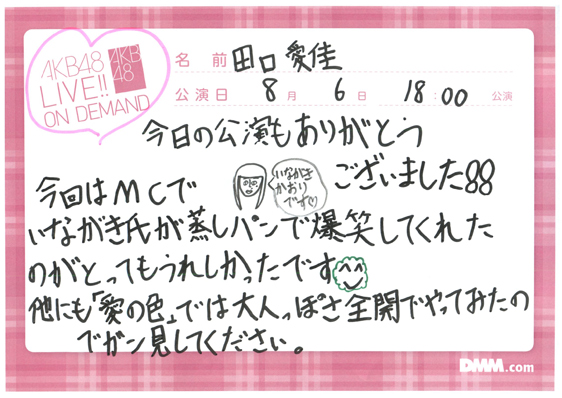 AKB48
LIVE!!
ON DEMAND
AKB
48
名 前 田口 愛佳
公演日 8月 6日 18:00 公演
今日の公演もありがとう
ございました!!
いながき
かおり
です♡
今回はMCで
いながき氏が蒸しパンで爆笑してくれた
のがとってもうれしかったです
他にも「愛の色」では大人っぽさ全開でやってみたの
でガン見してください。
DMM.com